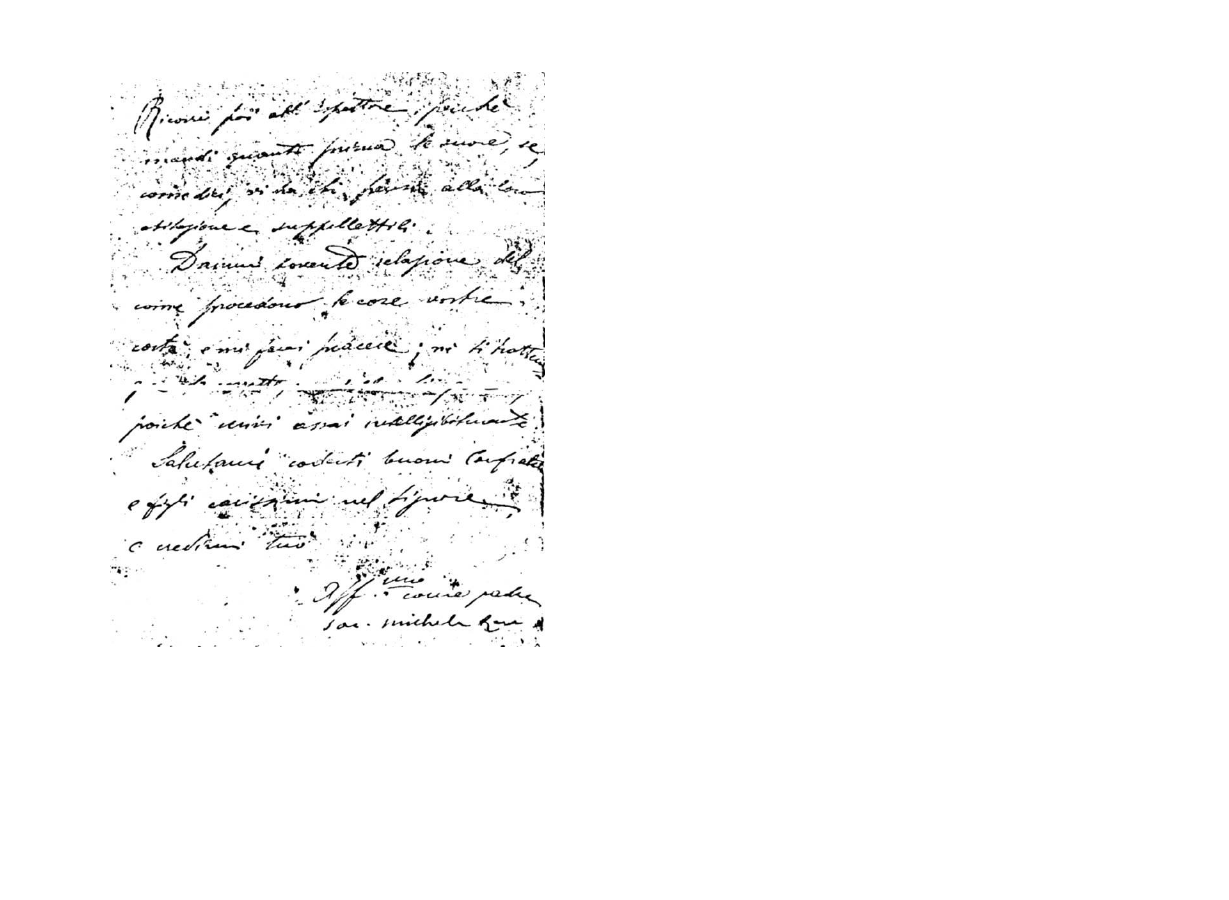 Ricorri poi all' Ispettore, perchè
mandi quanto prima le suore, se,
come dici, vi ha chi pensa alla loro
abitazione e suppellettili.
Dammi sovente relazione del
come procedono le cose vostre
costà, e mi farai piacere; nè ti trattenga
poichè scrivi assai intelligibilmente.
Salutami codesti buoni Confratelli
e figli carissimi nel Signore,
e credimi tuo
Aff.mo come padre
Sac. Michele Rua